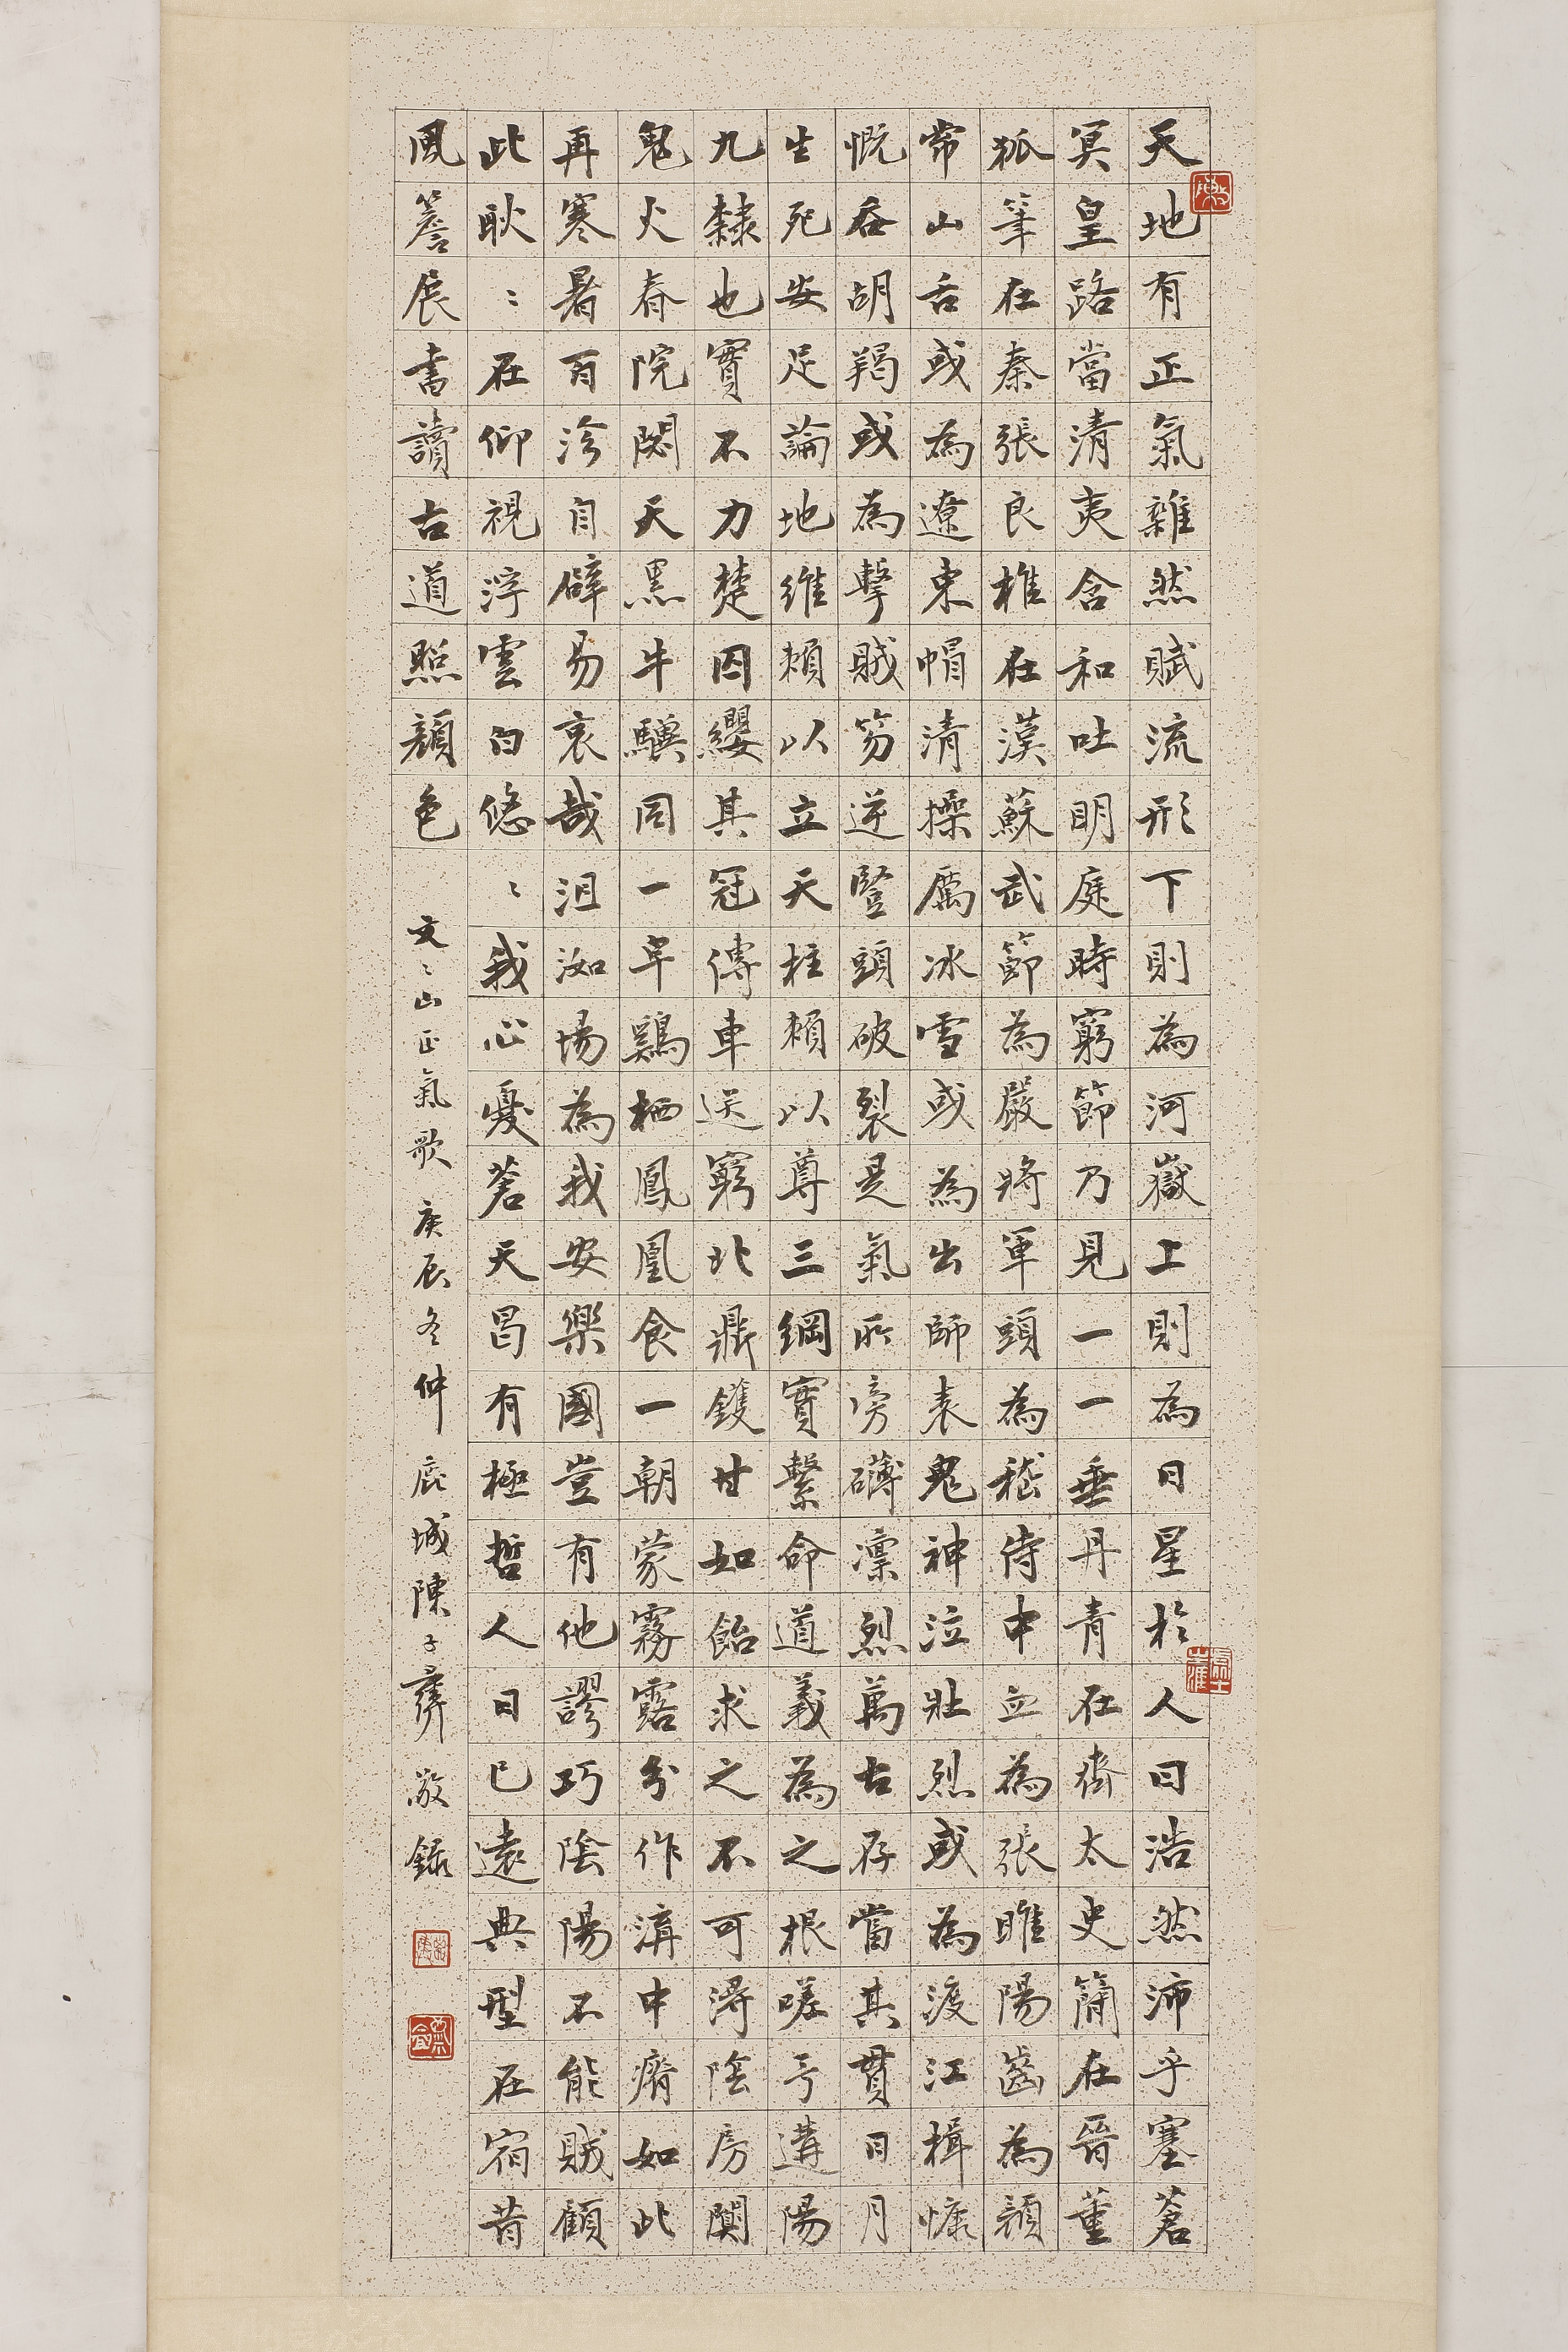 天地有正氣雜然賦流形下則為河嶽上則為日星於人曰浩然沛乎塞蒼
冥皇路當清夷含和吐明庭時窮節乃見一一垂丹青在齊太史簡在晉董
狐筆在秦張良椎在漢蘇武節為嚴將軍頭為嵇侍中血為張睢陽齒為顏
常山舌或為遼東帽清操厲冰雪或為出師表鬼神泣壯烈或為渡江楫慷
慨吞胡羯或為擊賊笏逆豎頭破裂是氣所旁礴凜烈萬古存當其貫日月
生死安足論地維賴以立天柱賴以尊三綱實繫命道義為之根嗟予遘陽
九隸也實不力楚囚纓其冠傳車送窮北鼎鑊甘如飴求之不可得陰房闃
鬼火春院閟天黑牛驥同一皁鷄栖鳳凰食一朝蒙霧露分作溝中瘠如此
再寒暑百沴自辟易哀哉沮洳場為我安樂國豈有他謬巧陰陽不能賊顧
此耿〻在仰視浮雲白悠〻我心憂蒼天曷有極哲人日已遠典型在宿昔
風簷展書讀古道照顏色
文〻山正氣歌 庚辰冬仲 鹿城陳子彝敬錄